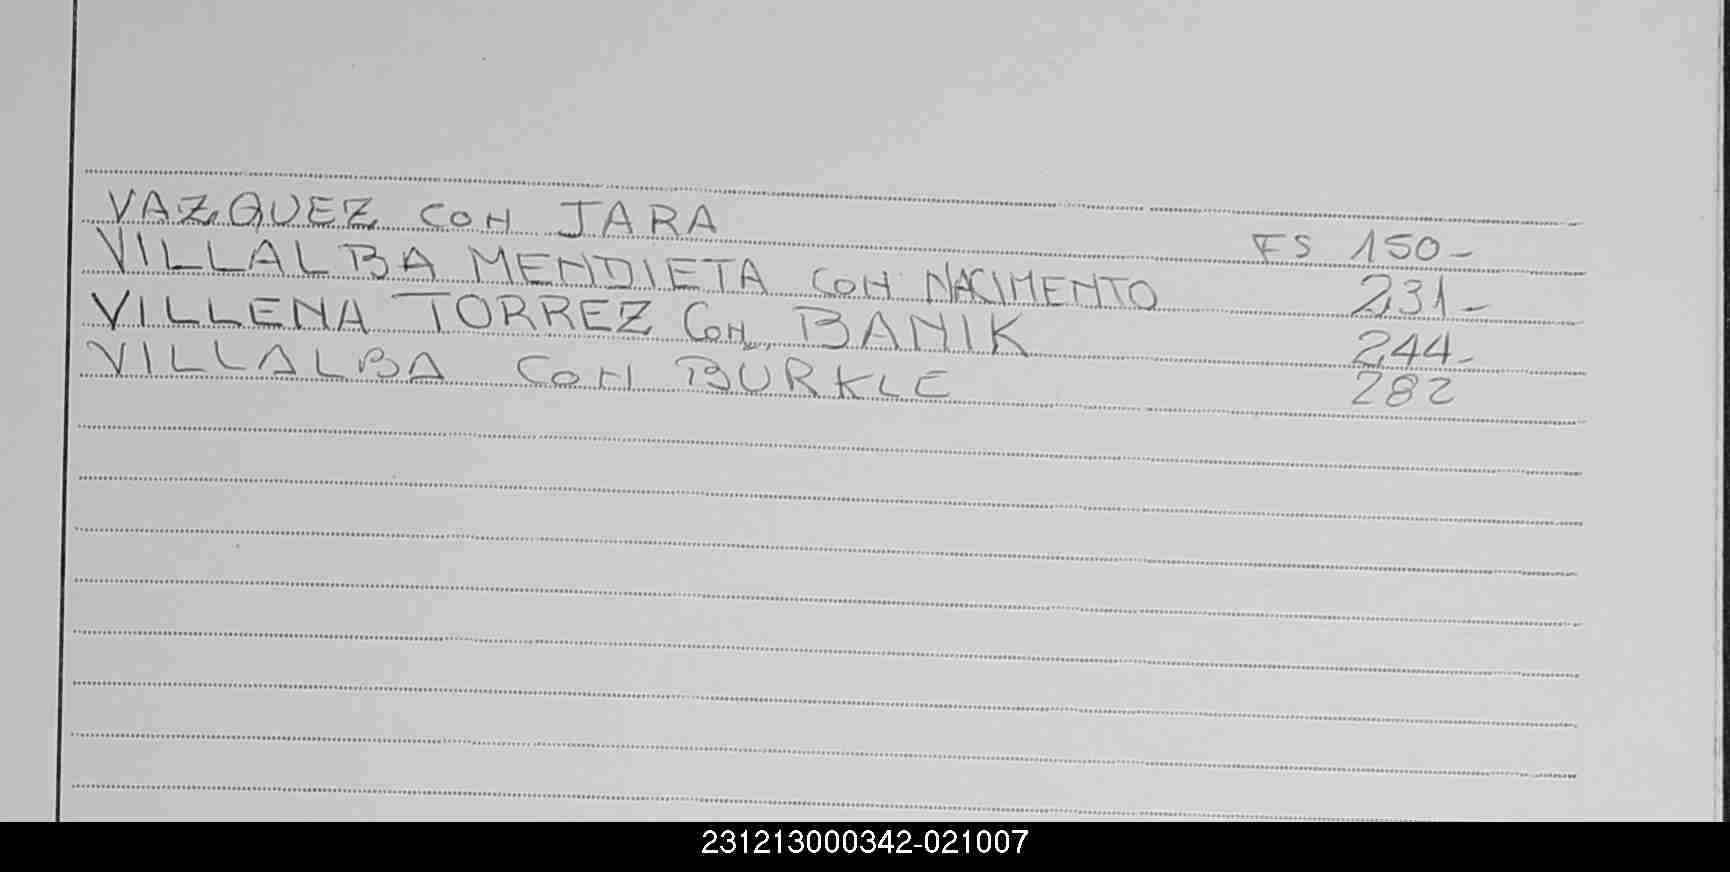 VAZQUEZ CON JARA FS 150-
VILLALBA MENDIETA CON NACIMENTO 231-
VILLENA TORREZ CON BANIK 244-
VILLALBA CON BURKLE 282
231213000342-021007